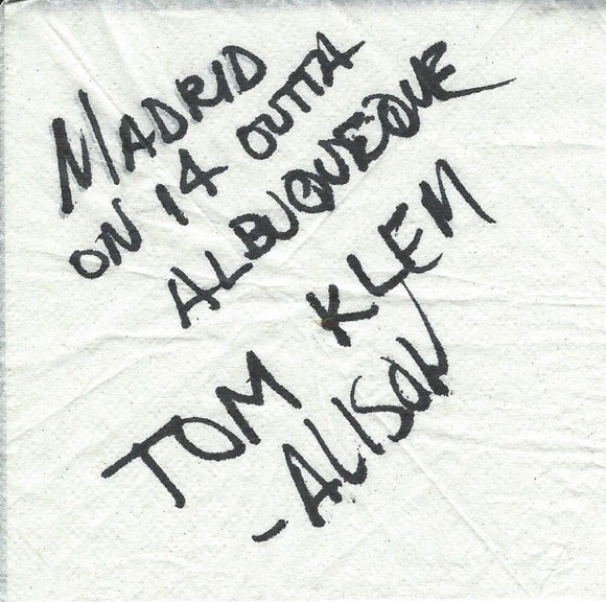 MADRID
ON 14 OUTTA
ALBUQUEQUE
TOM KLEM
-ALISON